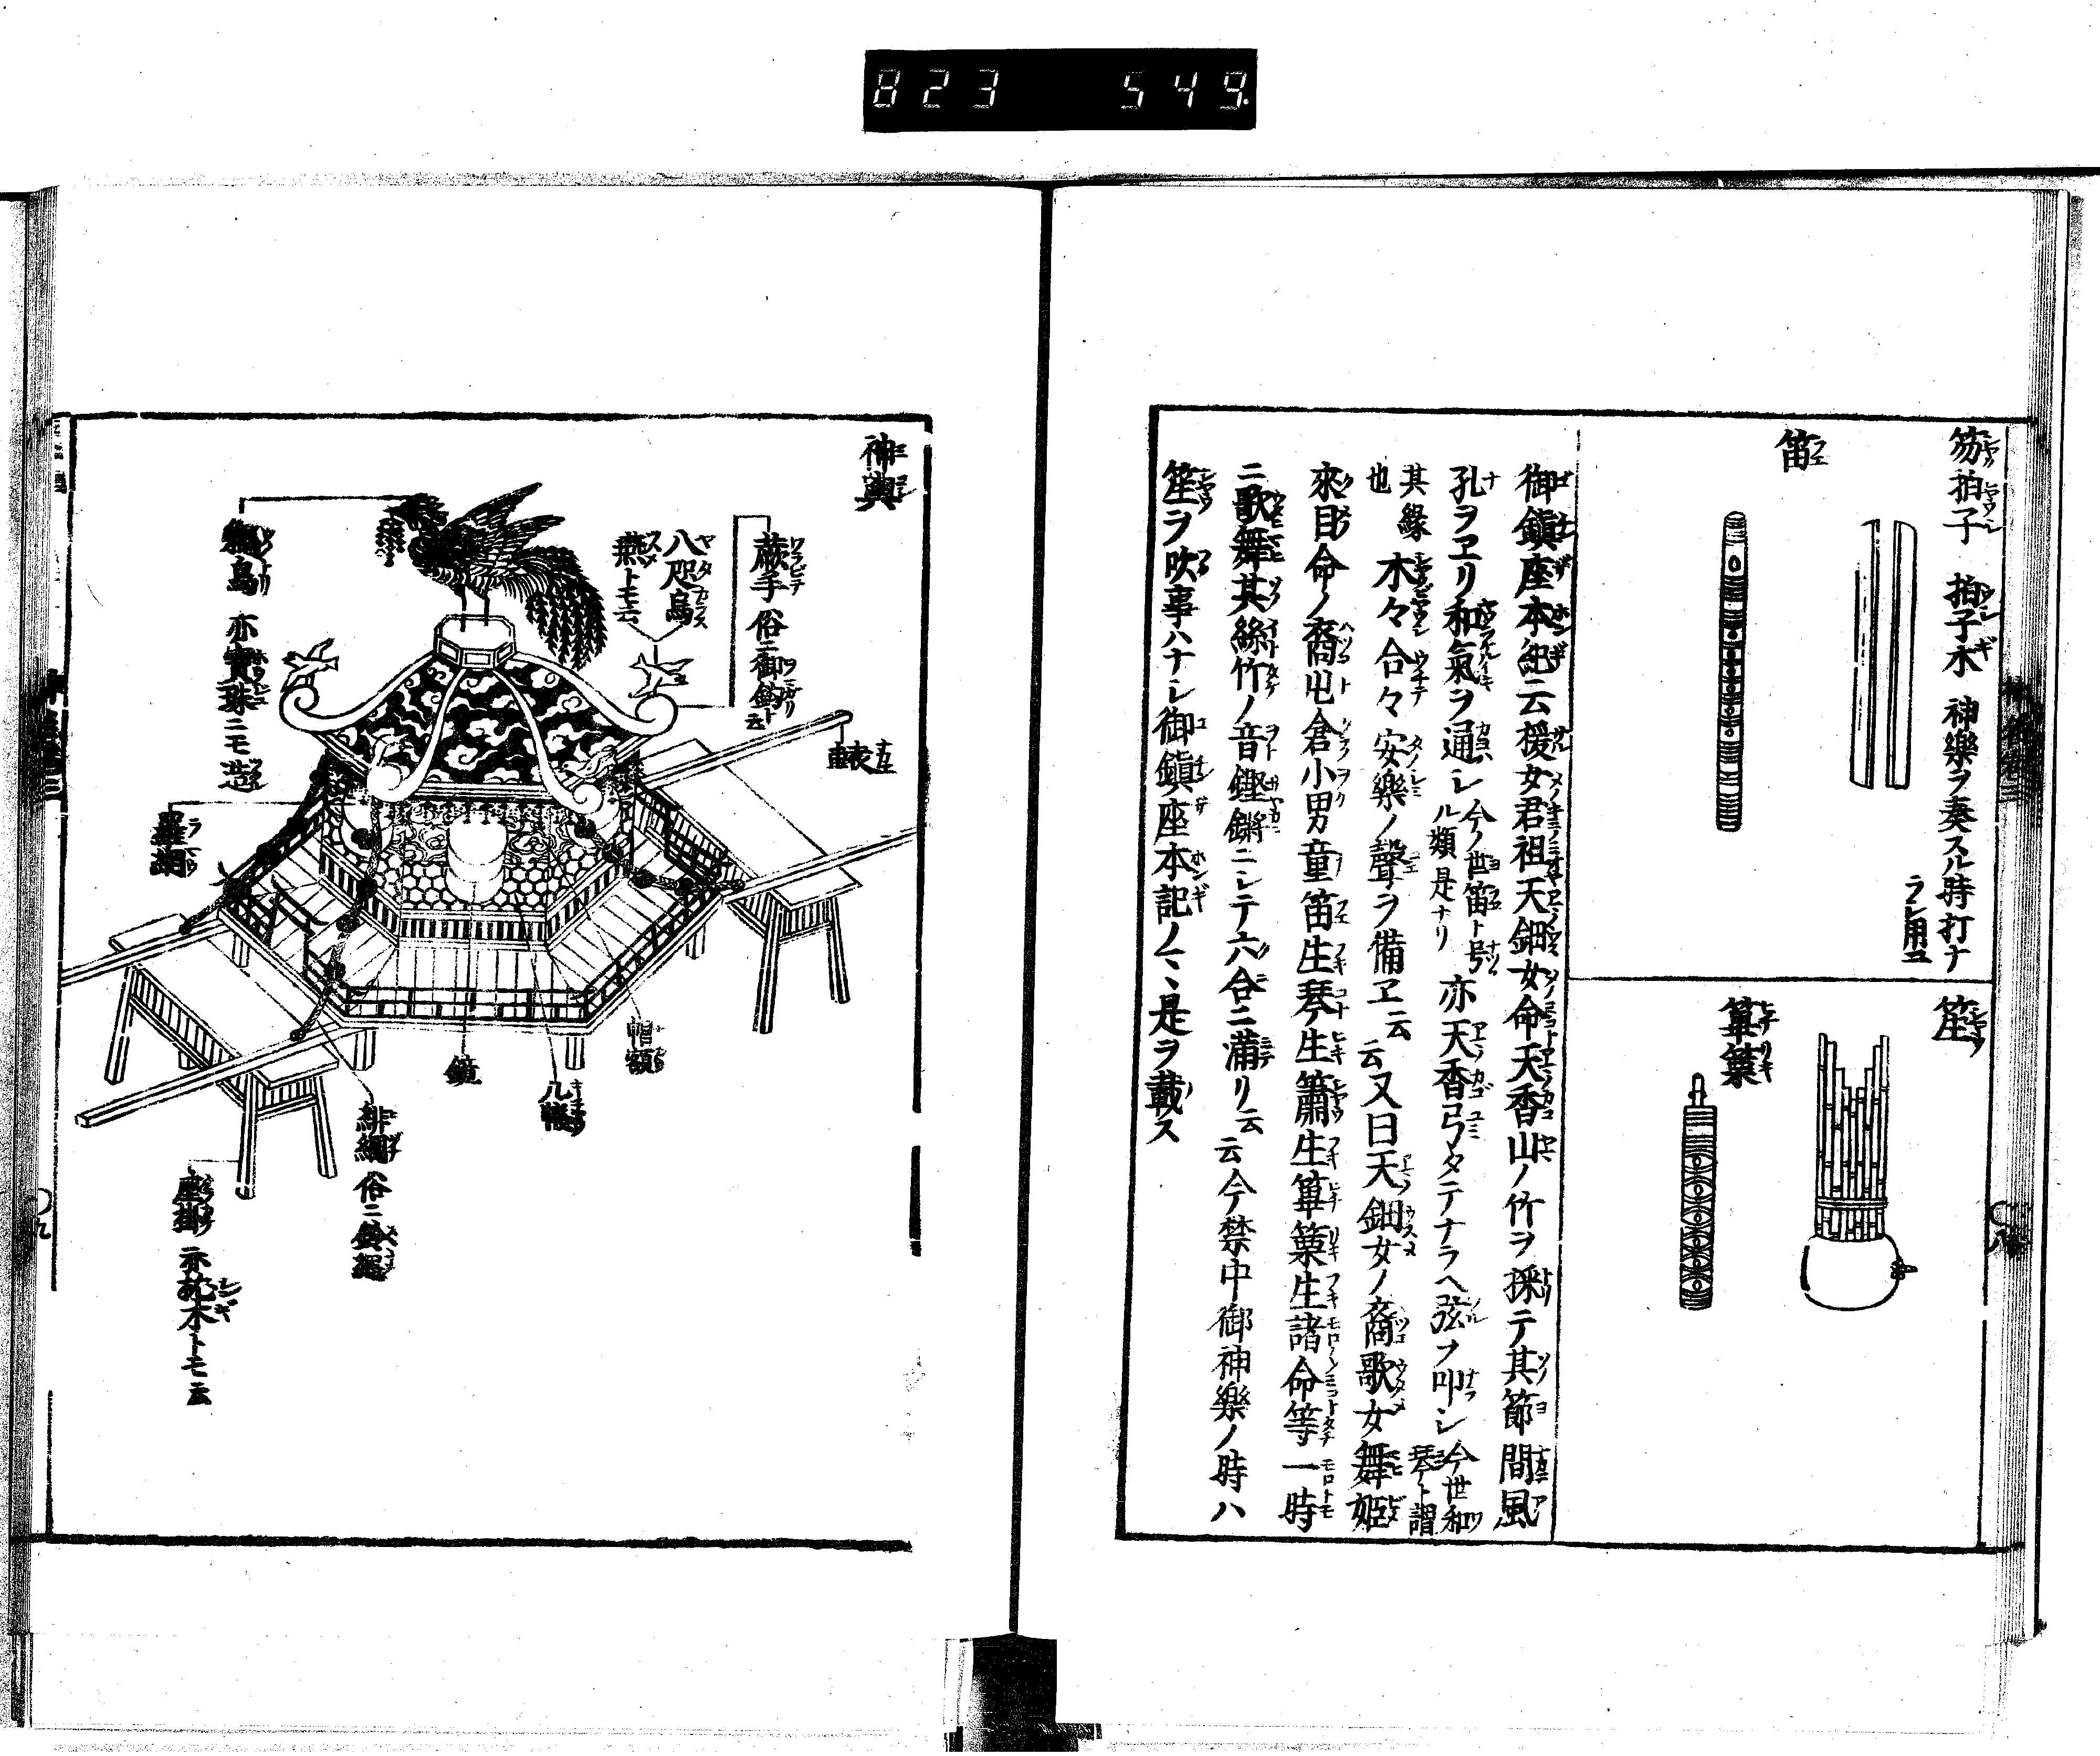 823 549.
笏拍子 拍子木 神樂ヲ奏スル時打ナ
ラシ用ユ
笛
笙
篳篥
御鎮座本紀云援女君祖天鈿女命天香山ノ竹ヲ採テ其節間風
孔ヲヱリ和氣ヲ通シ今ノ世笛ト号ル類是ナリ亦天香弓タテナラヘ弦ヲ叩シ今世和琴ト謂
其緣也木々合々安樂ノ聲ヲ備ヱ云云又曰天鈿女ノ裔歌女舞姫
來目命ノ裔屯倉小男童笛生琴生簫生篳篥生諸命等一時
ニ歌舞其絲竹ノ音鏗鏘ニシテ六合ニ滿リ云云今禁中御神樂ノ時ハ
笙ヲ吹事ハナシ御鎮座本記ノマヽ是ヲ載ス
神輿
蕨手 俗ニ御鉤ト云
八咫烏
燕トモ云
亦寶珠ニモ造
轅
帽額
几帳
鏡
緋綱 俗ニ鈴綱
座掛 亦枕木トモ云